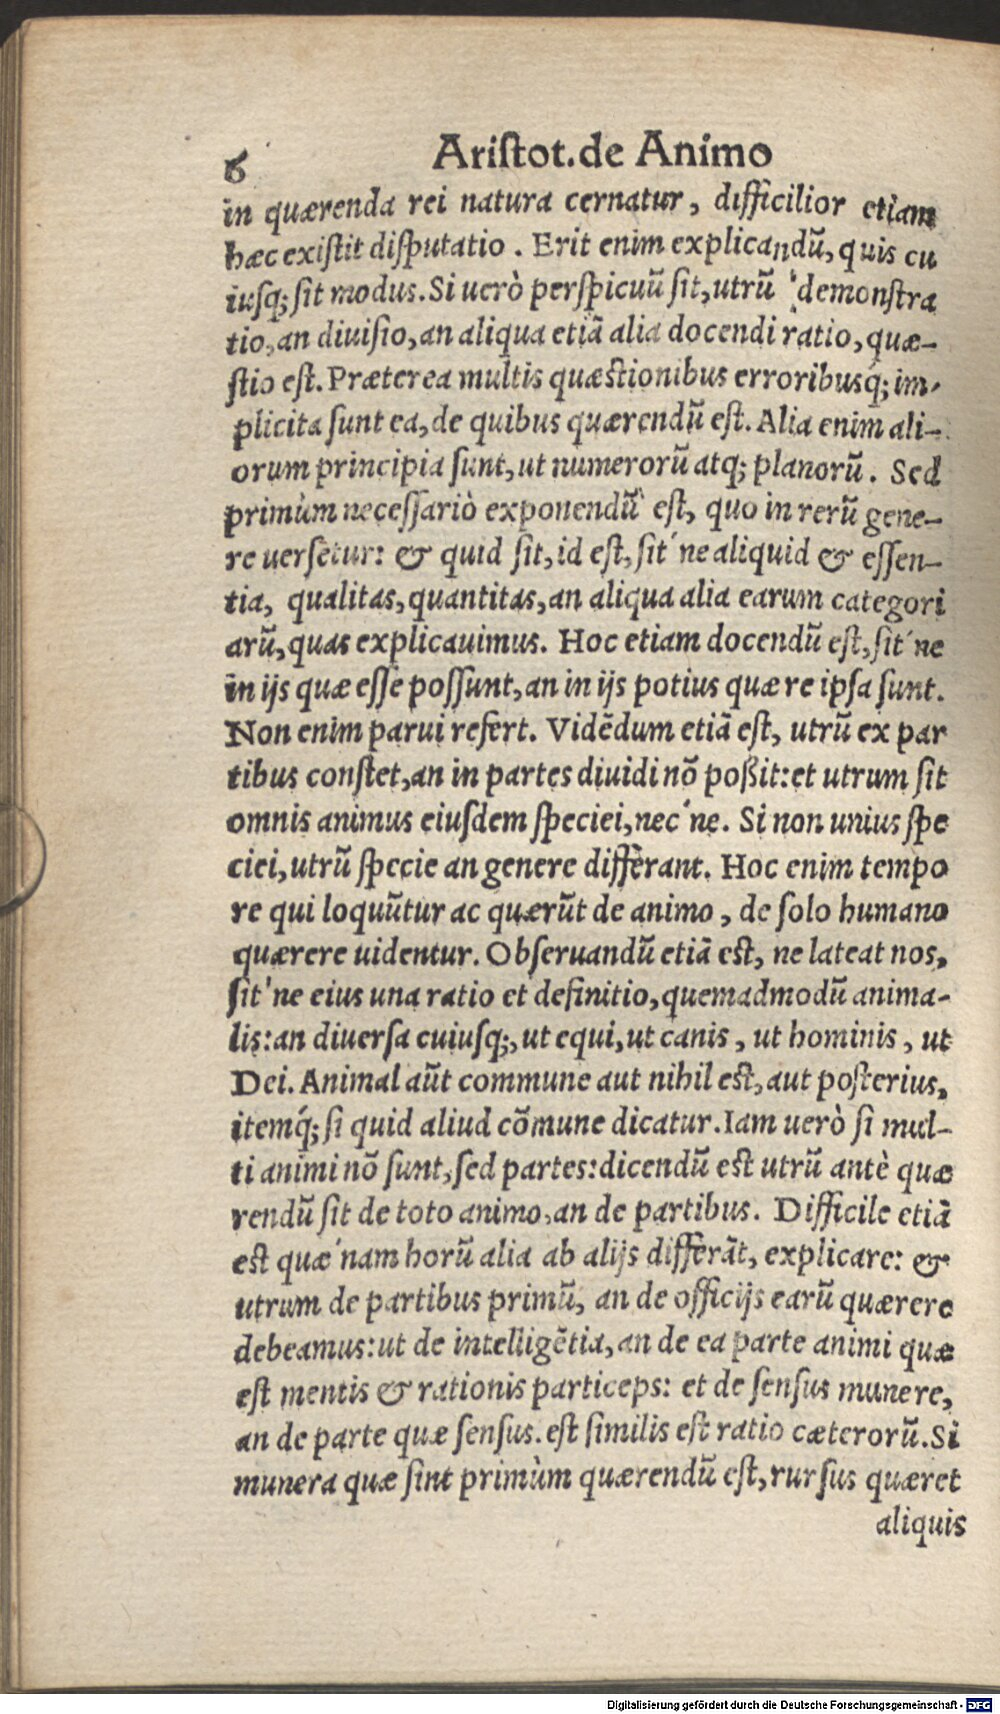 6 Ariſtot. de Animo
in quærenda rei natura cernatur, difficilior etiam
hæc exiſtit diſputatio. Erit enim explicandũ, quis cu
iuſq; ſit modus. Si uerò perſpicuũ ſit, utrũ demonſtra
tio, an diuiſio, an aliqua etiã alia docendi ratio, quæ-
ſtio eſt. Præterea multis quæſtionibus erroribusq́; im-
plicita ſunt ea, de quibus quærendũ eſt. Alia enim ali-
orum principia ſunt, ut numerorũ atq; planorũ. Sed
primùm neceſſariò exponendũ eſt, quo in rerũ gene-
re uerſetur: & quid ſit, id eſt, ſit´ne aliquid & eſſen-
tia, qualitas, quantitas, an aliqua alia earum categori
arũ, quas explicauimus. Hoc etiam docendũ eſt, ſit´ne
in ijs quæ eſſe poſſunt, an in ijs potius quæ re ipſa ſunt.
Non enim parui refert. Vidẽdum etiã eſt, utrũ ex par
tibus conſtet, an in partes diuidi nõ poßit: et utrum ſit
omnis animus eiuſdem ſpeciei, nec´ne. Si non unius ſpe
ciei, utrũ ſpecie an genere differant. Hoc enim tempo
re qui loquũtur ac quærũt de animo, de ſolo humano
quærere uidentur. Obſeruandũ etiã eſt, ne lateat nos,
ſit´ne eius una ratio et definitio, quemadmodũ anima-
lis: an diuerſa cuiuſq;, ut equi, ut canis, ut hominis, ut
Dei. Animal aũt commune aut nihil eſt, aut poſterius,
itemq́; ſi quid aliud cõmune dicatur. Iam uerò ſi mul-
ti animi nõ ſunt, ſed partes: dicendũ eſt utrũ antè quæ
rendũ ſit de toto animo, an de partibus. Difficile etiã
eſt quæ´nam horũ alia ab alijs differãt, explicare: &
utrum de partibus primũ, an de officijs earũ quærere
debeamus: ut de intelligẽtia, an de ea parte animi quæ
eſt mentis & rationis particeps: et de ſenſus munere,
an de parte quæ ſenſus. eſt ſimilis eſt ratio cæterorũ. Si
munera quæ ſint primùm quærendũ eſt, rurſus quæret
aliquis
Digitalisierung gefördert durch die Deutsche Forschungsgemeinschaft - DFG